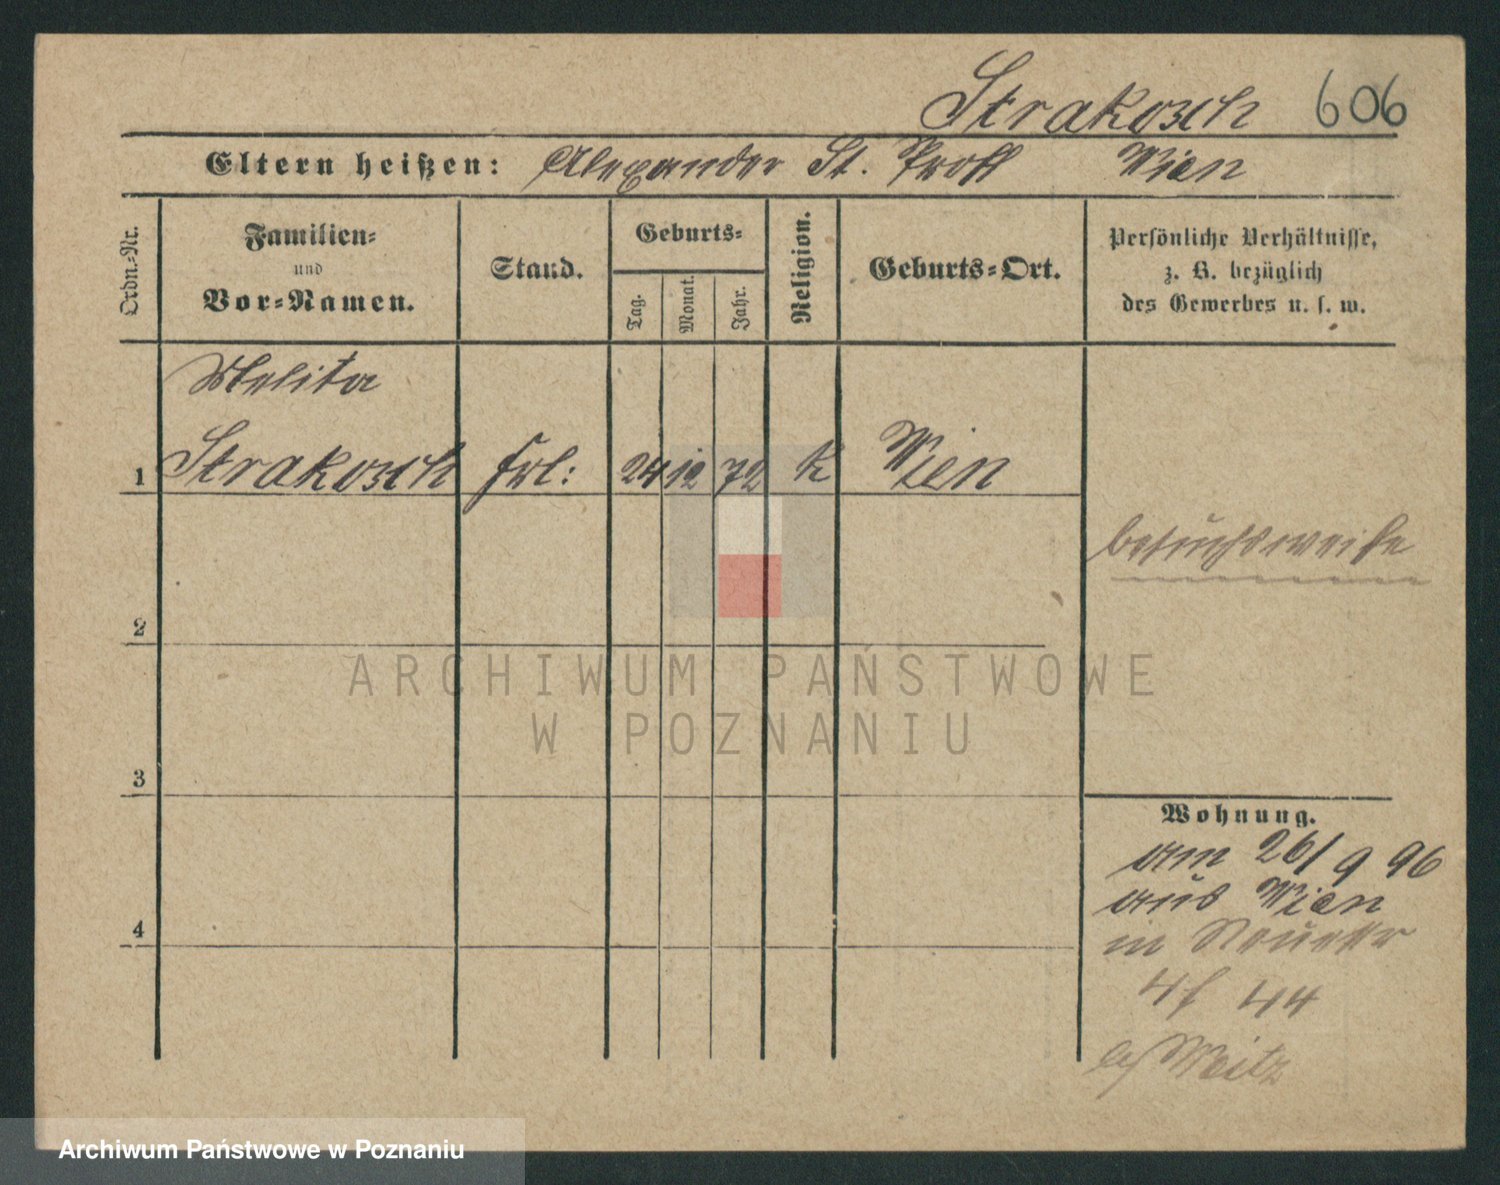 Strakosch 606
Eltern heißen: Alexander St. Proff Wien
Ordn.-Nr.
Familien-
und
Vor-Namen.
Stand.
Geburts-
Tag.
Monat.
Jahr.
Religion.
Geburts-Ort.
Persönliche Verhältnisse,
z. B. bezüglich
des Gewerbes u. s. w.
Melita
1 Strakosch Frl: 24 12 72 K Wien
besuchsweise
2
ARCHIWUM PAŃSTWOWE
W POZNANIU
3
Wohnung.
am 26/9 96
aus Wien
4
in
44
Weitz
Archiwum Państwowe w Poznaniu